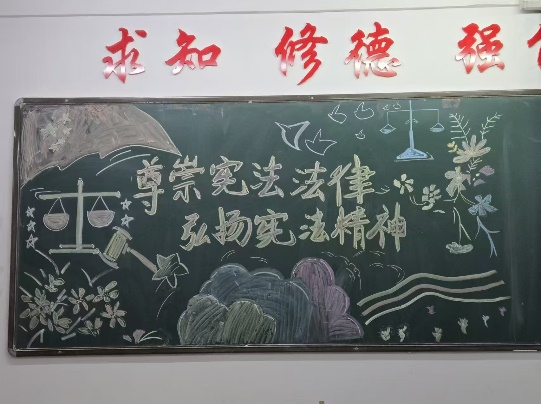 求知 修德 强
尊崇宪法法律
弘扬宪法精神